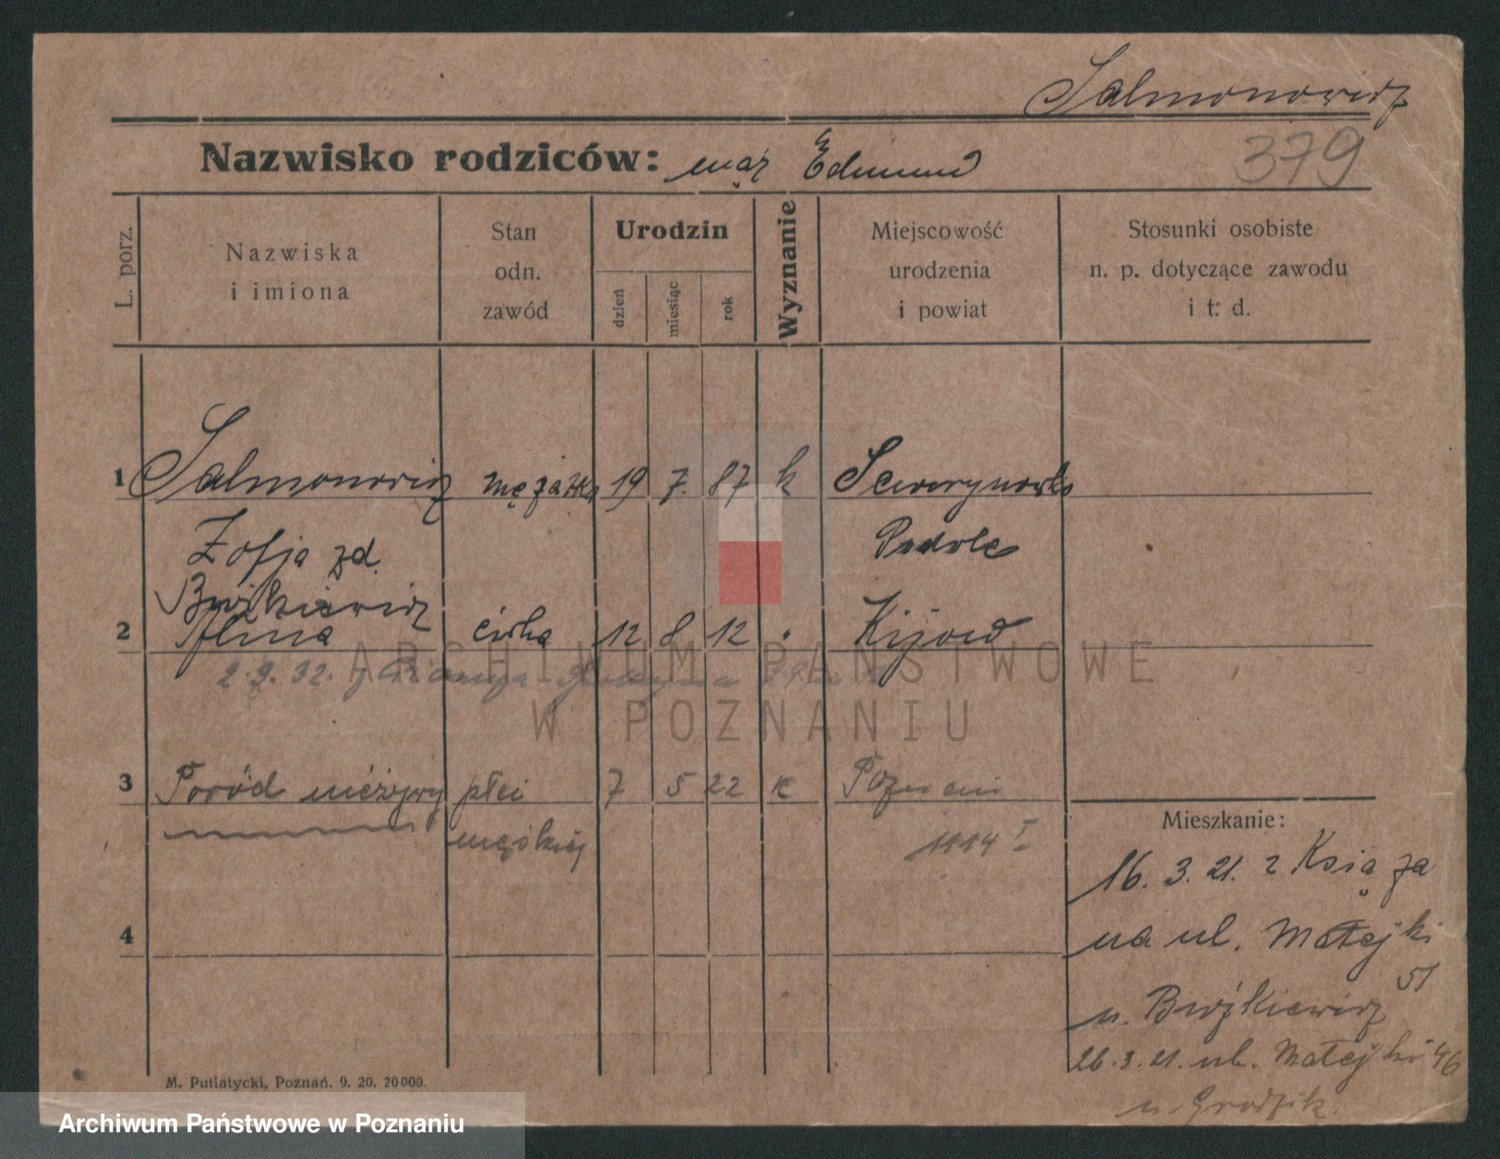 Salmonowicz
Nazwisko rodziców: mąż Edmund
379
L. porz.
Nazwiska
i imiona
Stan
odn.
zawód
Urodzin
dzień
miesiąc
rok
Wyznanie
Miejscowość
urodzenia
i powiat
Stosunki osobiste
n. p. dotyczące zawodu
i t. d.
1 Salmonowicz mężatka 19 7. 87 k Sewerynowka
Zofja zd. Podole
2 Alina córka 12 8 12 " Kijów
2.9.32.
ARCHIWUM PAŃSTWOWE
W POZNANIU
3 Poród nieżywy płci 7 5 22 k Poznań
męskiej 1114 I
4
Mieszkanie:
16. 3. 21. z Książa
na ul. Matejki
51
u.
26.3.21. ul. Matejki 46
u. Grodzik.
M. Putiatycki, Poznań. 9. 20. 20000.
Archiwum Państwowe w Poznaniu